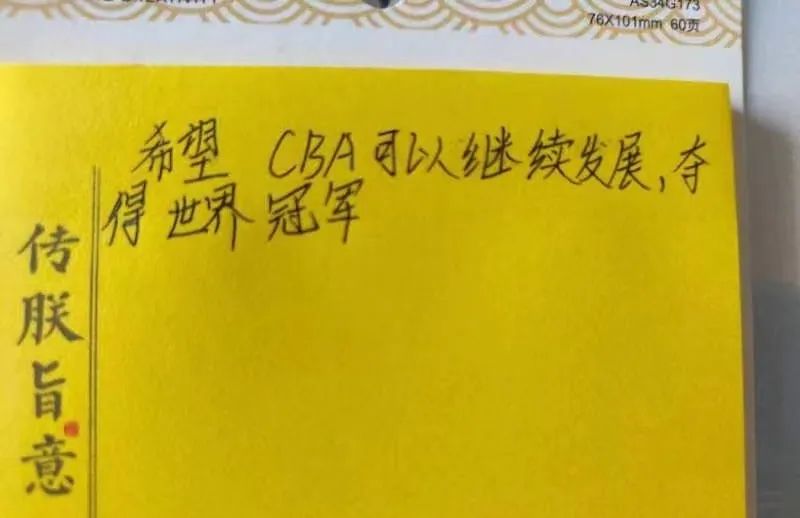 AS34G173
76X101mm 60页
希望 CBA可以继续发展,夺
得世界冠军
传朕旨意